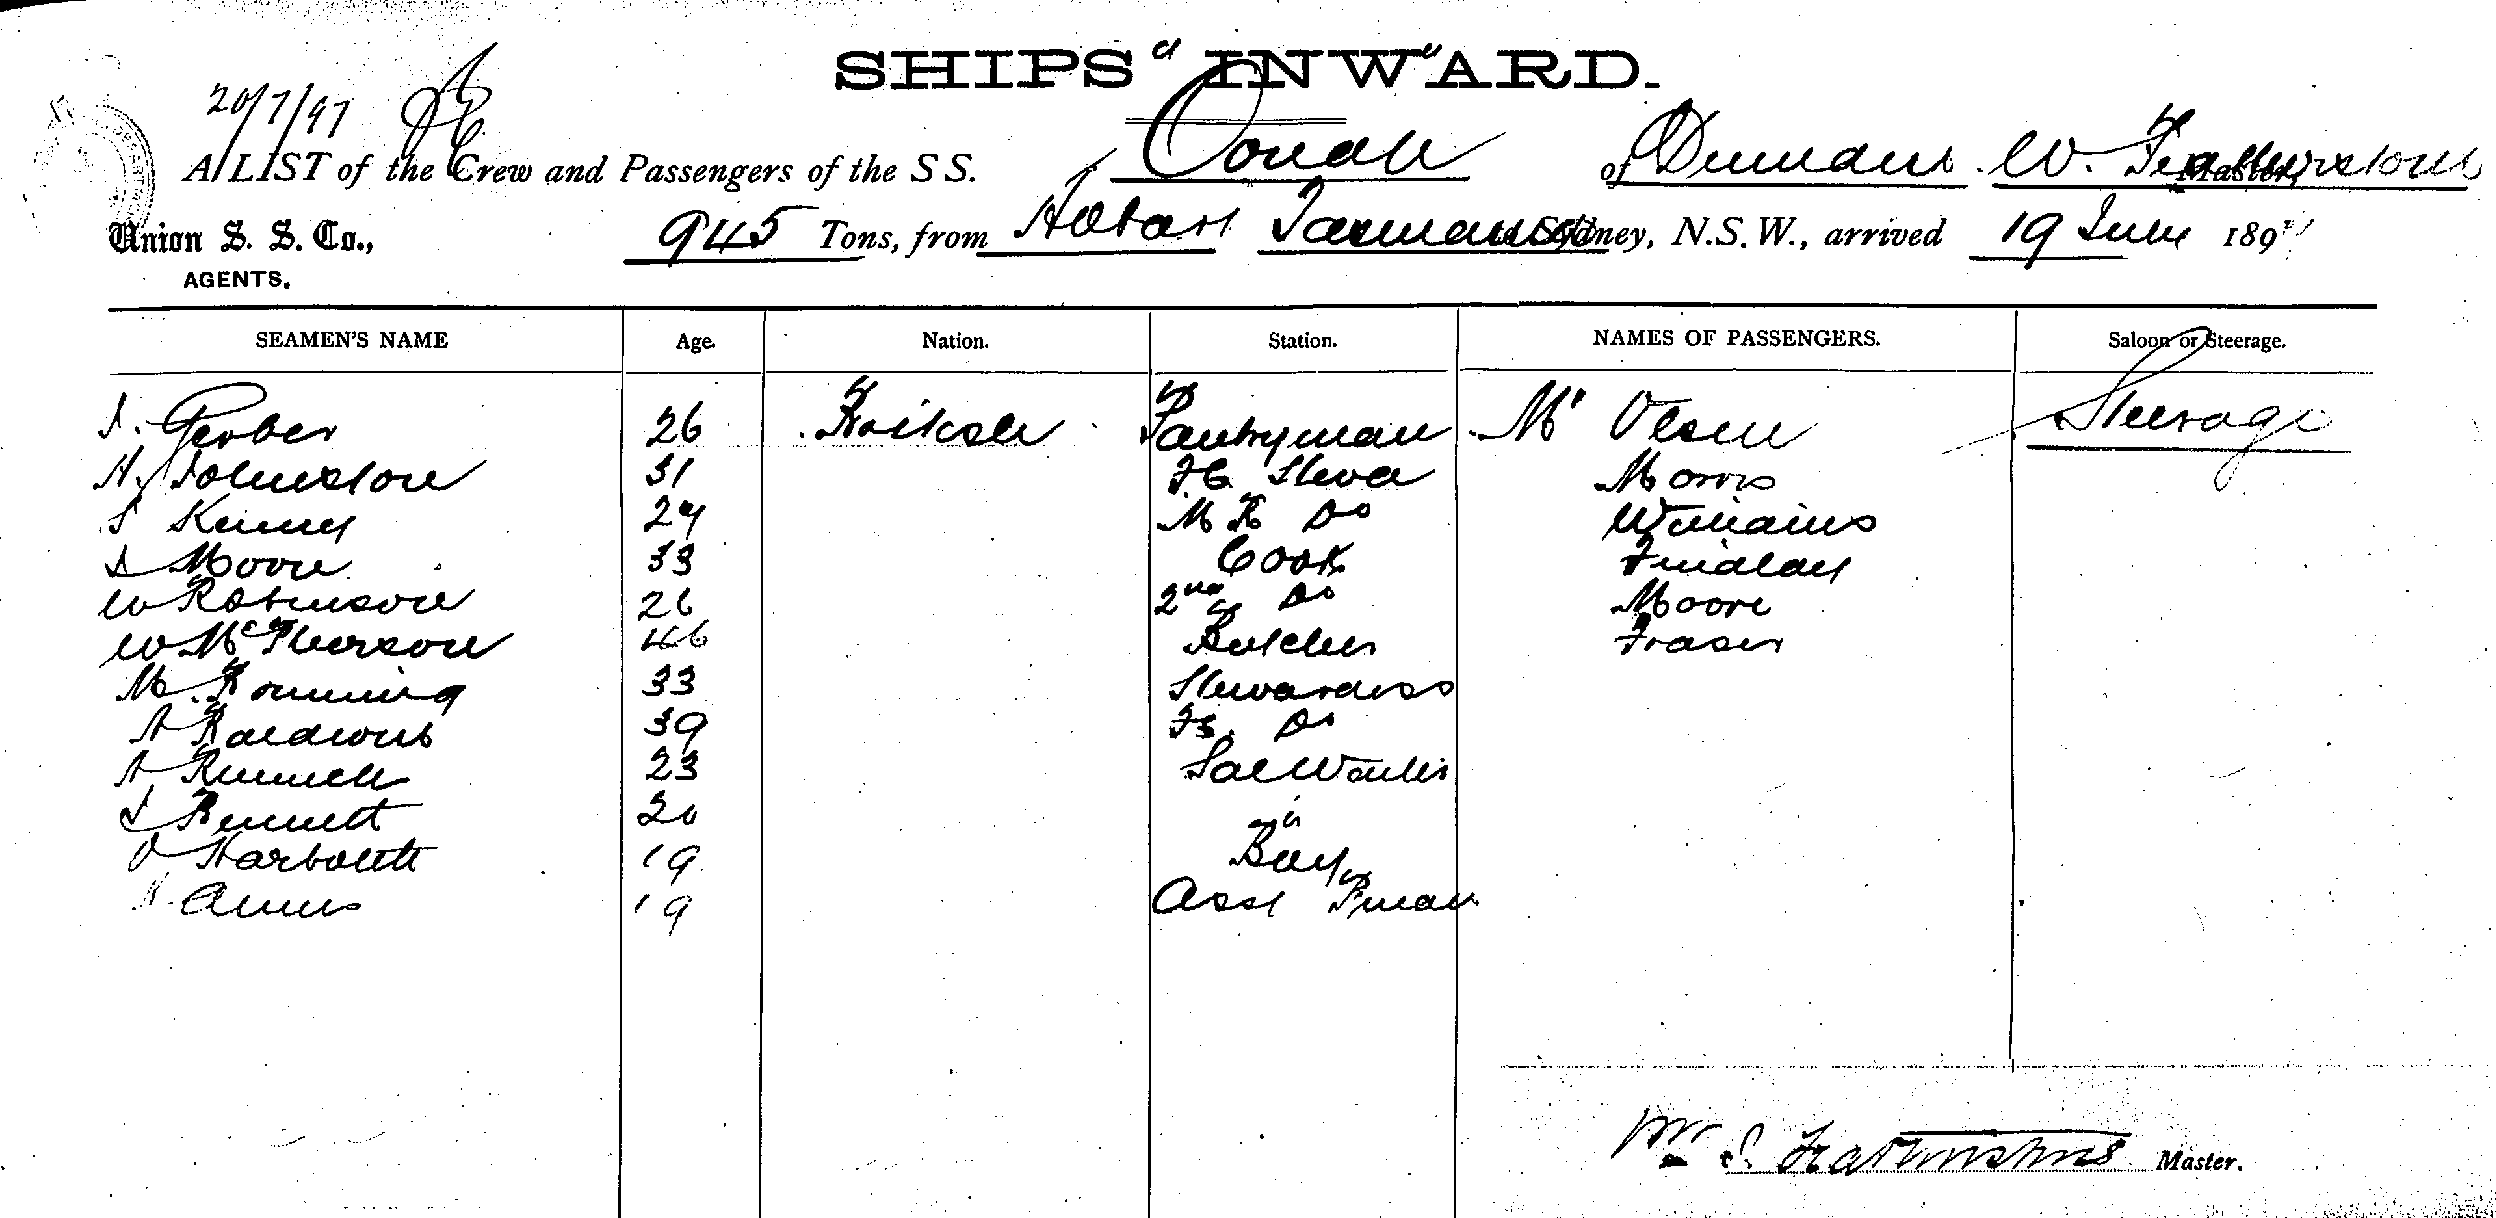 SHIPS INWARD.
20/7/97
A LIST of the Crew and Passengers of the S S. Oonah of Dunedin W. Featherstone Master,
Union S. S. Co., 945 Tons, from Hobart Tasmania Sydney, N.S.W., arrived 19 July 189
AGENTS.
SEAMEN'S NAME Age. Nation. Station. NAMES OF PASSENGERS. Saloon or Steerage.
Gerber 26 British Pantryman Mr Olsen Steerage
H. Johnstone 31 F.C. Stewd Morris
S Kenny 29 M R Do Williams
J Moore 33 Cook Findlay
W Robinson 26 2nd Do Moore
W McPherson 46 Butcher Fraser
M. 33 Stewardess
A Baldwin 39 Do
A 23 Sal Waiter
J Bennett 20
Harbottle 19 Boy
19 Asst Pman
Wm. Featherstone Master.